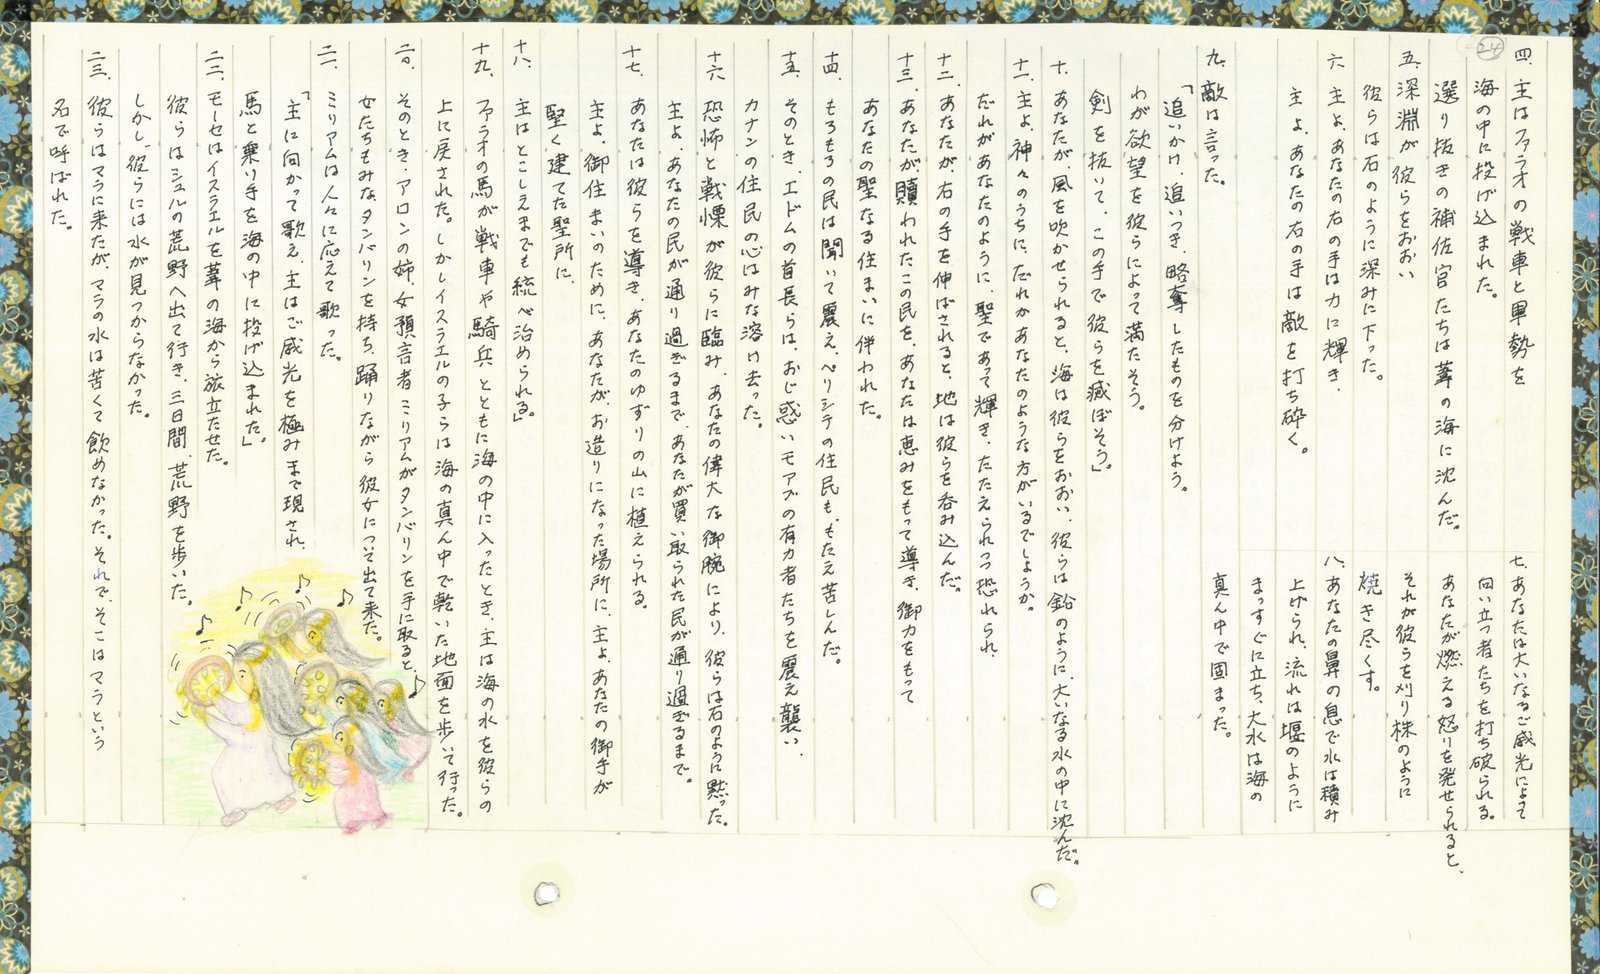 24
四、主はファラオの戦車と軍勢を
海の中に投げ込まれた。
選り抜きの補佐官たちは葦の海に沈んだ。
五、深淵が彼らをおおい
彼らは石のように深みに下った。
六、主よ、あなたの右の手は力に輝き、
主よ、あなたの右の手は敵を打ち砕く。
七、あなたは大いなるご威光によって
向い立つ者たちを打ち破られる。
あなたが燃える怒りを発せられると、
それが彼らを刈り株のように
焼き尽くす。
八、あなたの鼻の息で水は積み
上げられ、流れは堰のように
まっすぐに立ち、大水は海の
真ん中で固まった。
九、敵は言った。
「追いかけ、追いつき、略奪したものを分けよう。
わが欲望を彼らによって満たそう。
剣を抜いて、この手で彼らを滅ぼそう」
十、あなたが風を吹かせられると、海は彼らをおおい、彼らは鉛のように、大いなる水の中に沈んだ。
十一、主よ、神々のうちに、だれかあなたのような方がいるでしょうか。
だれがあなたのように、聖であって輝き、たたえられつつ恐れられ、
十二、あなたが、右の手を伸ばされると、地は彼らを呑み込んだ。
十三、あなたが贖われたこの民を、あなたは恵みをもって導き、御力をもって
あなたの聖なる住まいに伴われた。
十四、もろもろの民は聞いて震え、ペリシテの住民も、もだえ苦しんだ。
十五、そのとき、エドムの首長らは、おじ惑いモアブの有力者たちを震え襲い、
カナンの住民の心はみな溶け去った。
十六、恐怖と戦慄が彼らに臨み、あなたの偉大な御腕により、彼らは石のように黙った。
主よ、あなたの民が通り過ぎるまで、あなたが買い取られた民が通り過ぎるまで。
十七、あなたは彼らを導き、あなたのゆずりの山に植えられる。
主よ、御住まいのために、あなたが、お造りになった場所に、主よ、あなたの御手が
堅く建てた聖所に、
十八、主はとこしえまでも統べ治められる」
十九、ファラオの馬が戦車や騎兵とともに海の中に入ったとき、主は海の水を彼らの
上に戻された。しかしイスラエルの子らは海の真ん中で乾いた地面を歩いて行った。
二〇、そのとき、アロンの姉、女預言者ミリアムがタンバリンを手に取ると、
女たちもみなタンバリンを持ち、踊りながら彼女について出て来た。
二一、ミリアムは人々に応えて歌った。
「主に向かって歌え、主はご威光を極みまで現され、
馬と乗り手を海の中に投げ込まれた」
二二、モーセはイスラエルを葦の海から旅立たせた。
彼らはシュルの荒野へ出て行き、三日間、荒野を歩いた。
しかし、彼らには水が見つからなかった。
二三、彼らはマラに来たが、マラの水は苦くて飲めなかった。それで、そこはマラという
名で呼ばれた。